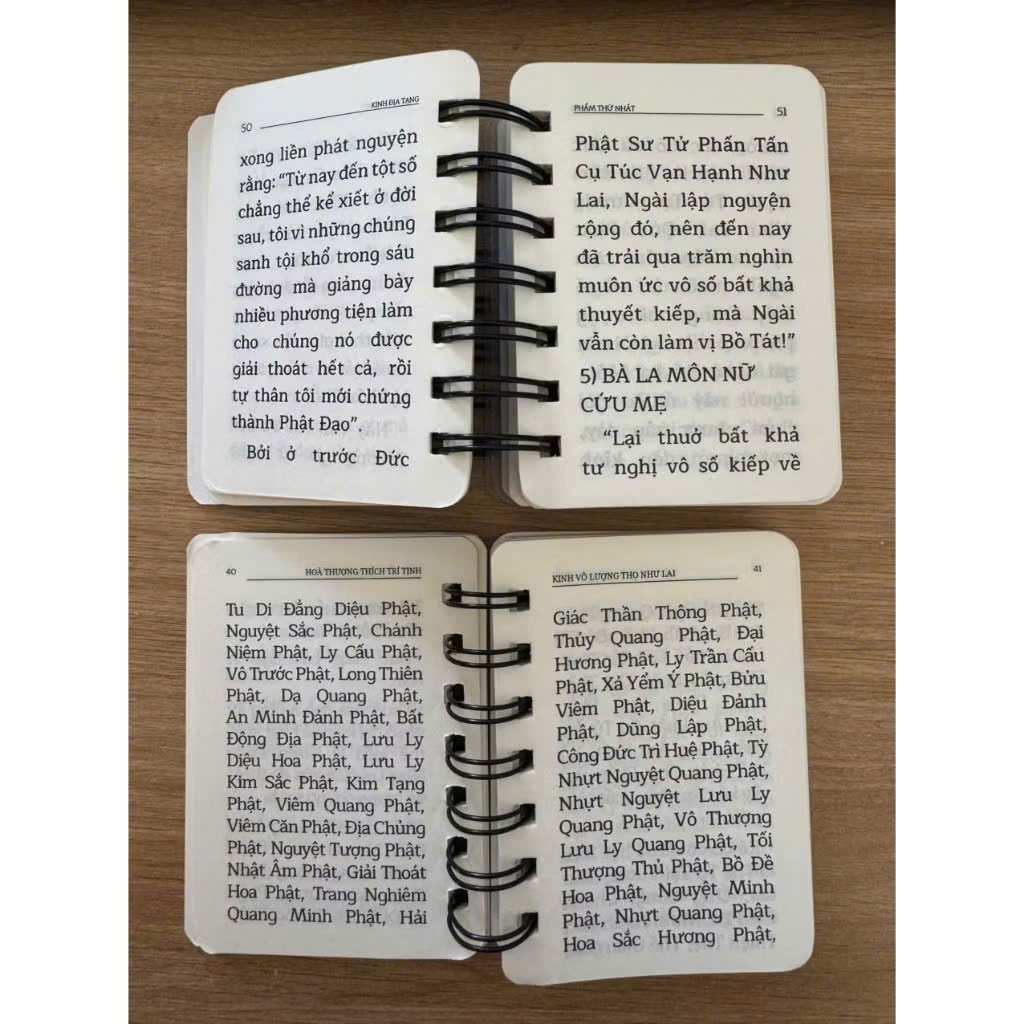 50 KINH ĐỊA TẠNG
xong liền phát nguyện
rằng: “Từ nay đến tột số
chẳng thể kể xiết ở đời
sau, tôi vì những chúng
sanh tội khổ trong sáu
đường mà giảng bày
nhiều phương tiện làm
cho chúng nó được
giải thoát hết cả, rồi
tự thân tôi mới chứng
thành Phật Đạo”.
Bởi ở trước Đức
PHẨM THỨ NHẤT 51
Phật Sư Tử Phấn Tấn
Cụ Túc Vạn Hạnh Như
Lai, Ngài lập nguyện
rộng đó, nên đến nay
đã trải qua trăm nghìn
muôn ức vô số bất khả
thuyết kiếp, mà Ngài
vẫn còn làm vị Bồ Tát!”
5) BÀ LA MÔN NỮ
CỨU MẸ
“Lại thuở bất khả
tư nghị vô số kiếp về
40 HOÀ THƯỢNG THÍCH TRÍ TỊNH
Tu Di Đẳng Diệu Phật,
Nguyệt Sắc Phật, Chánh
Niệm Phật, Ly Cấu Phật,
Vô Trước Phật, Long Thiên
Phật, Dạ Quang Phật,
An Minh Đảnh Phật, Bất
Động Địa Phật, Lưu Ly
Diệu Hoa Phật, Lưu Ly
Kim Sắc Phật, Kim Tạng
Phật, Viêm Quang Phật,
Viêm Căn Phật, Địa Chủng
Phật, Nguyệt Tượng Phật,
Nhật Âm Phật, Giải Thoát
Hoa Phật, Trang Nghiêm
Quang Minh Phật, Hải
KINH VÔ LƯỢNG THỌ NHƯ LAI 41
Giác Thần Thông Phật,
Thủy Quang Phật, Đại
Hương Phật, Ly Trần Cấu
Phật, Xả Yểm Ý Phật, Bửu
Viêm Phật, Diệu Đảnh
Phật, Dũng Lập Phật,
Công Đức Trì Huệ Phật, Tỳ
Nhựt Nguyệt Quang Phật,
Nhựt Nguyệt Lưu Ly
Quang Phật, Vô Thượng
Lưu Ly Quang Phật, Tối
Thượng Thủ Phật, Bồ Đề
Hoa Phật, Nguyệt Minh
Phật, Nhựt Quang Phật,
Hoa Sắc Hương Phật,